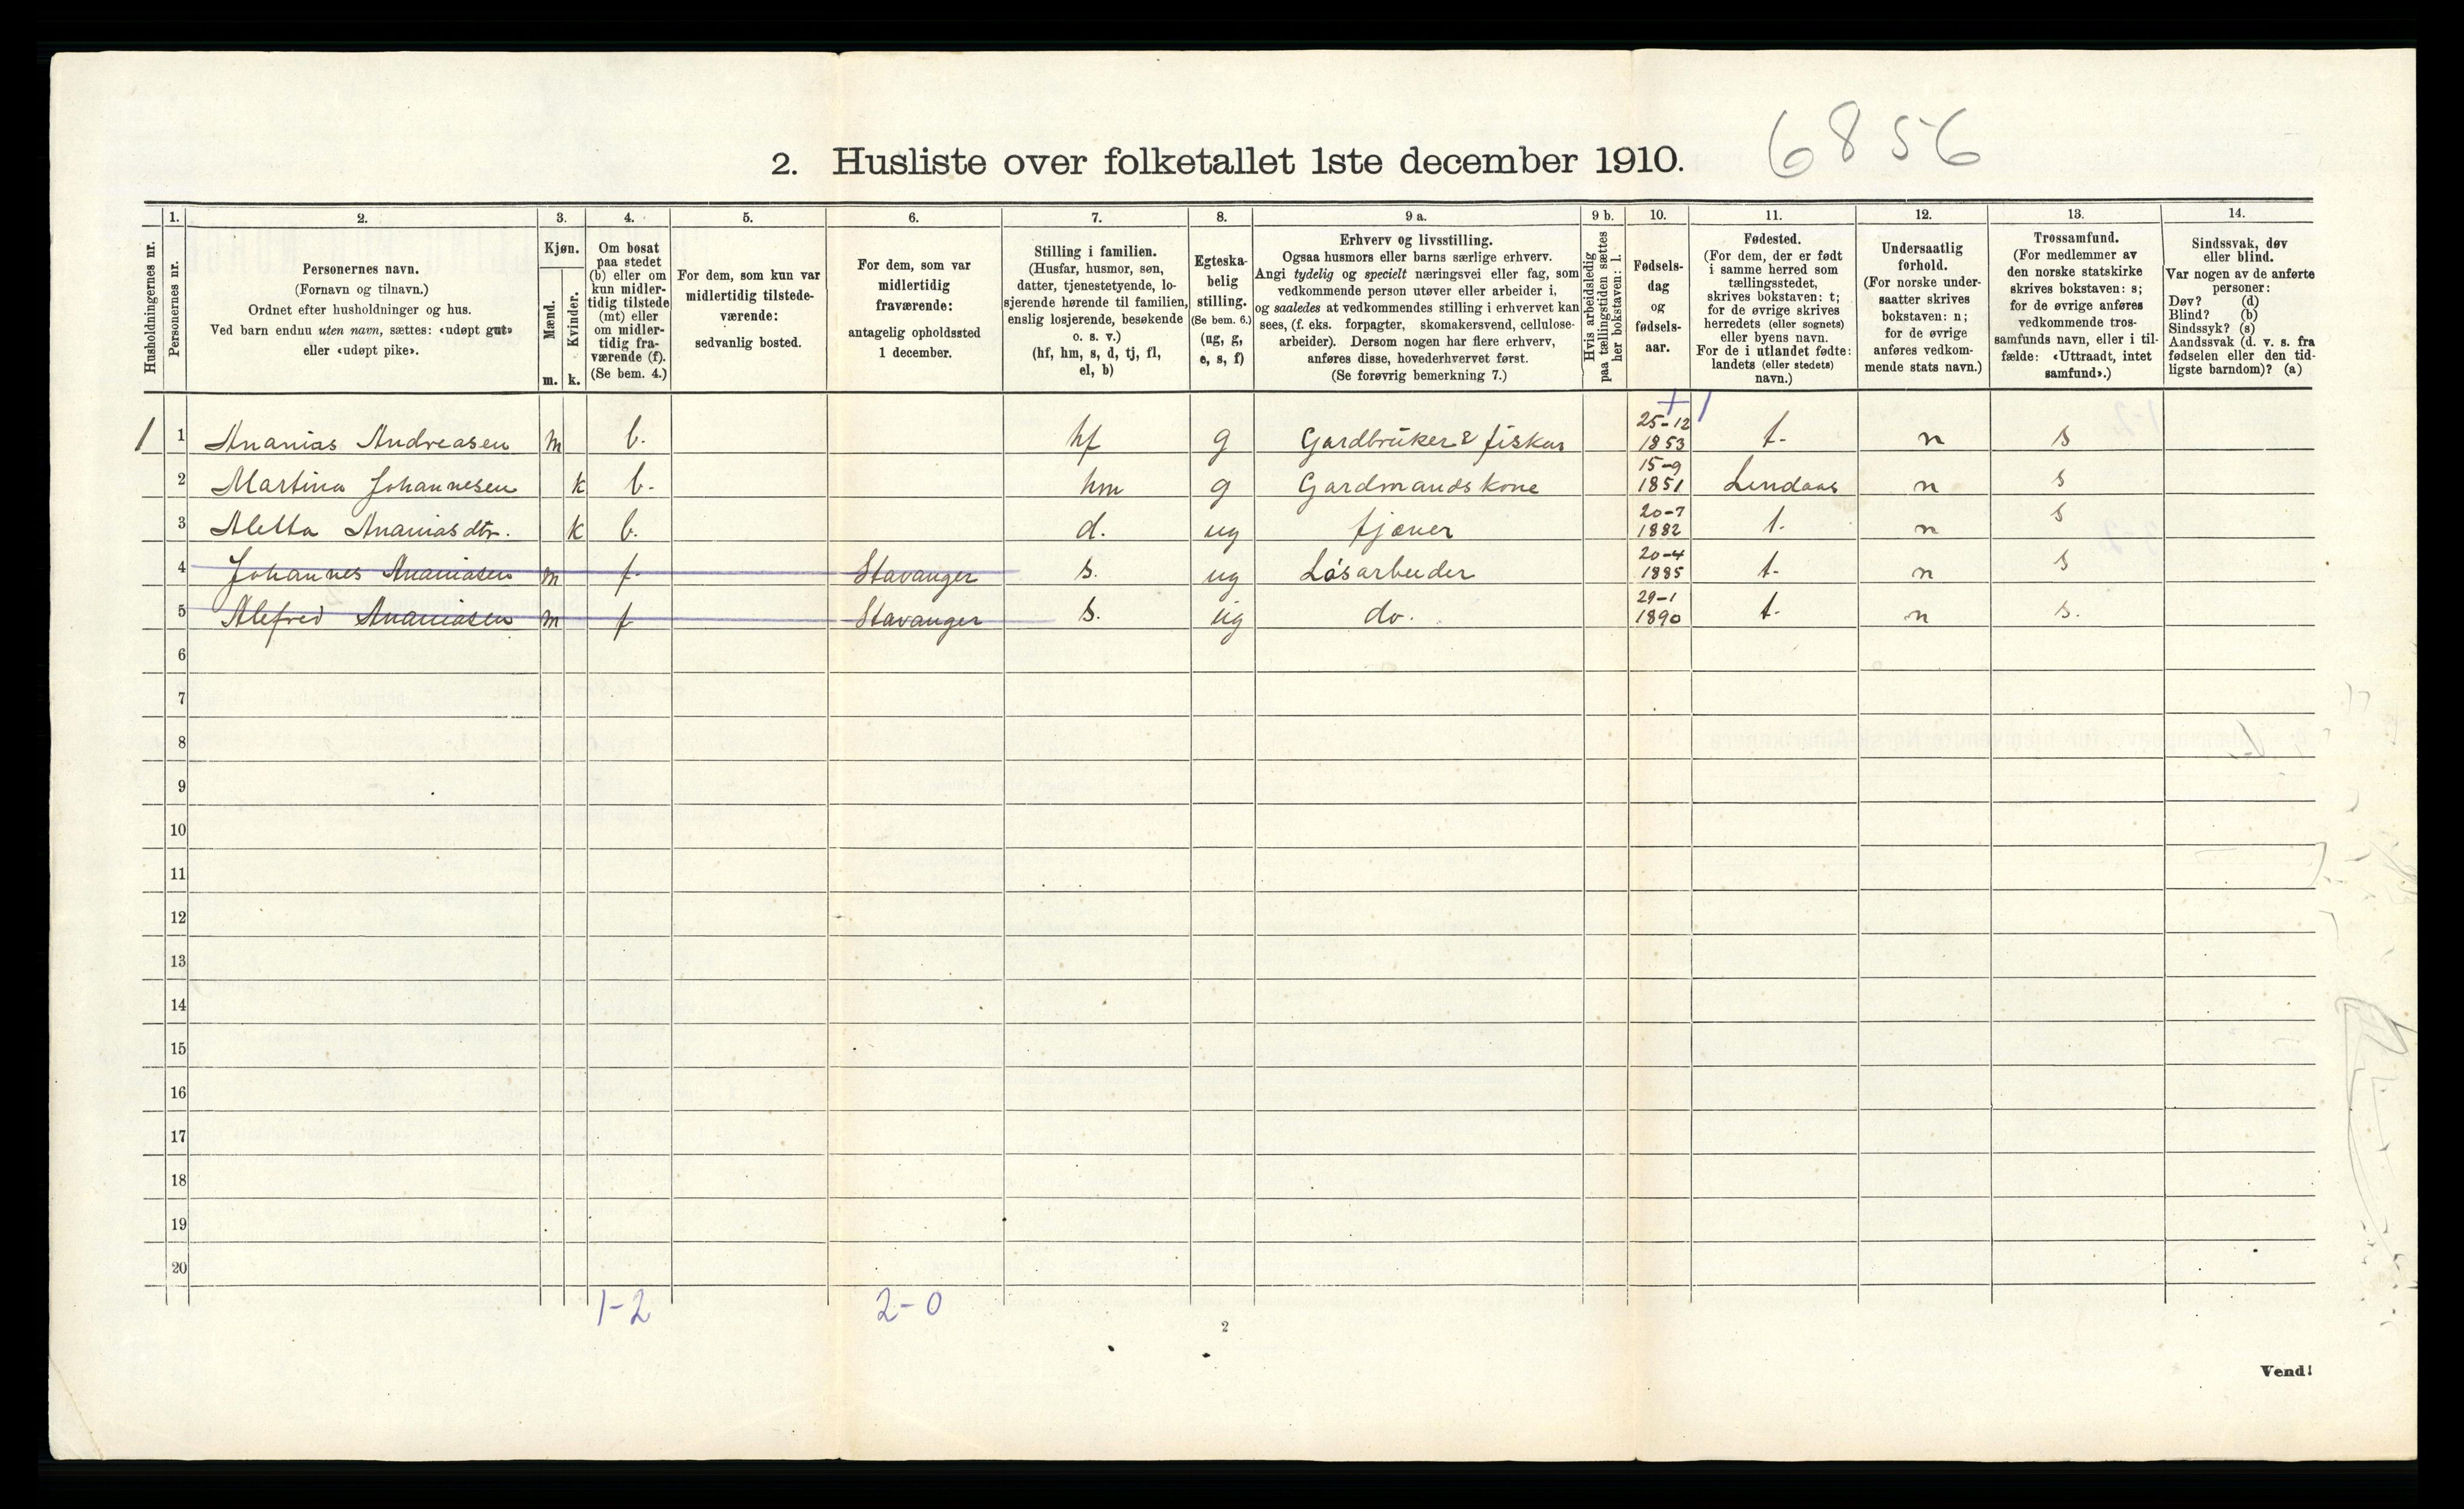 6856
2. Husliste over folketallet 1ste december 1910.
Husholdningernes nr.
1. Personernes nr.
2. Personernes navn.
(Fornavn og tilnavn.)
Ordnet efter husholdninger og hus.
Ved barn endnu uten navn, sættes: «udøpt gut»
eller «udøpt pike».
3. Kjøn.
Mænd. m.
Kvinder. k.
4. Om bosat
paa stedet
(b) eller om
kun midler-
tidig tilstede
(mt) eller
om midler-
tidig fra-
værende (f).
(Se bem. 4.)
5. For dem, som kun var
midlertidig tilstede-
værende:
sedvanlig bosted.
6. For dem, som var
midlertidig
fraværende:
antagelig opholdssted
1 december.
7. Stilling i familien.
(Husfar, husmor, søn,
datter, tjenestetyende, lo-
sjerende hørende til familien,
enslig losjerende, besøkende
o. s. v.)
(hf, hm, s, d, tj, fl,
el, b)
8. Egteska-
belig
stilling.
(Se bem. 6.)
(ug, g,
e, s, f)
9 a. Erhverv og livsstilling.
Ogsaa husmors eller barns særlige erhverv.
Angi tydelig og specielt næringsvei eller fag, som
vedkommende person utøver eller arbeider i,
og saaledes at vedkommendes stilling i erhvervet kan
sees, (f. eks. forpagter, skomakersvend, cellulose-
arbeider). Dersom nogen har flere erhverv,
anføres disse, hovederhvervet først.
(Se forøvrig bemerkning 7.)
9 b. Hvis arbeidsledig
paa tællingstiden sættes
her bokstaven: l.
10. Fødsels-
dag
og
fødsels-
aar.
11. Fødested.
(For dem, der er født
i samme herred som
tællingsstedet,
skrives bokstaven: t;
for de øvrige skrives
herredets (eller sognets)
eller byens navn.
For de i utlandet fødte:
landets (eller stedets)
navn.)
12. Undersaatlig
forhold.
(For norske under-
saatter skrives
bokstaven: n;
for de øvrige
anføres vedkom-
mende stats navn.)
13. Trossamfund.
(For medlemmer av
den norske statskirke
skrives bokstaven: s;
for de øvrige anføres
vedkommende tros-
samfunds navn, eller i til-
fælde: «Uttraadt, intet
samfund».)
14. Sindssvak, døv
eller blind.
Var nogen av de anførte
personer:
Døv? (d)
Blind? (b)
Sindssyk? (s)
Aandssvak (d. v. s. fra
fødselen eller den tid-
ligste barndom)? (a)
1 1 Ananias Andreasen m b. hf g Gardbruker & fisker 25-12 1853 t. n s
2 Martina Johannesen k b. hm g Gardmandskone 15-9 1851 Lindaas n s
3 Aletta Ananiasdtr. k b. d. ug tjæner 20-7 1882 t. n s
4 Johannes Ananiasen m f. Stavanger s. ug Løsarbeider 20-4 1885 t. n s
5 Alefred Ananiasen m f Stavanger s. ug do. 29-1 1890 t. n s.
6
7
8
9
10
11
12
13
14
15
16
17
18
19
20
1-2 2-0
2
Vend!